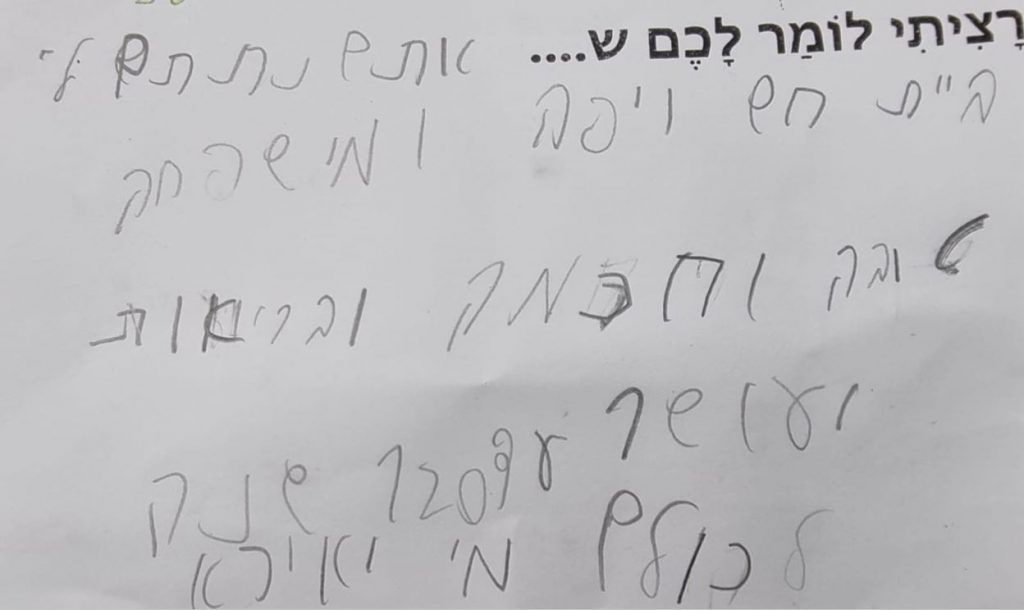 רָצִיתִי לוֹמַר לָכֶם ש.... אתם נתתם לי
בית חם ויפה ומישפחה
טובה וחכמה ובריאות
ועושר
שנה
לכולם מי